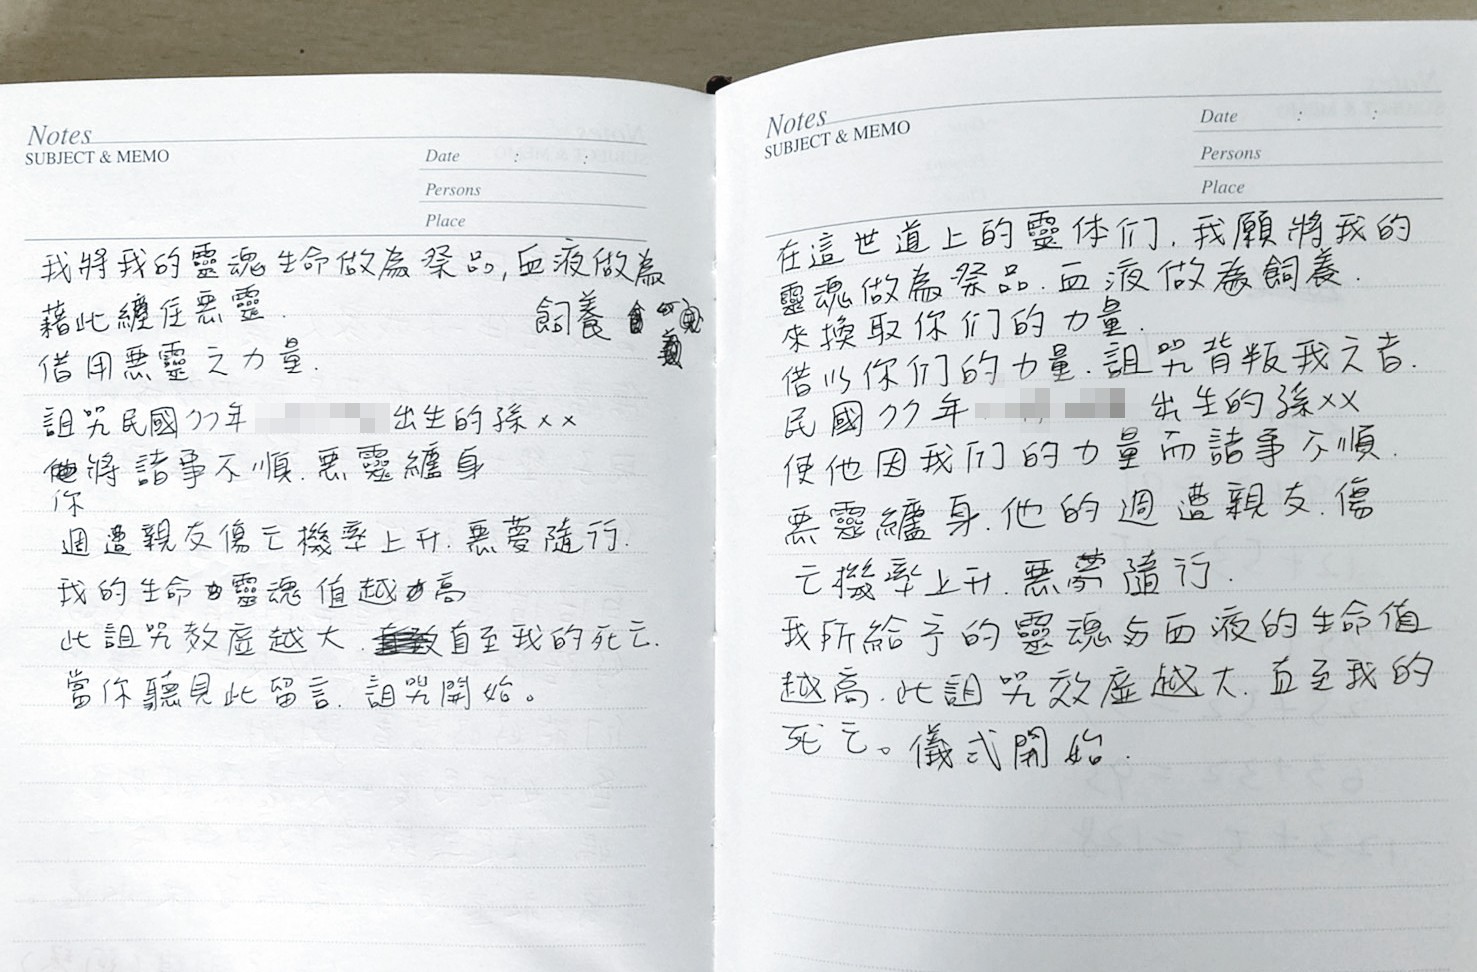 Notes
SUBJECT & MEMO
Date : :
Persons
Place
我將我的靈魂生命做為祭品,血液做為
飼養
藉此纏住惡靈.
借用惡靈之力量.
詛咒民國77年 出生的孫xx
將諸事不順.惡靈纏身
你
週遭親友傷亡機率上升.惡夢隨行.
我的生命 靈魂值越 高
此詛咒效應越大. 直至我的死亡.
當你聽見此留言.詛咒開始。
Notes
SUBJECT & MEMO
Date : :
Persons
Place
在這世道上的靈体们.我願將我的
靈魂做為祭品.血液做為飼養.
來換取你们的力量.
借以你们的力量.詛咒背叛我之者.
民國77年 出生的孫xx
使他因我们的力量而諸事不順.
惡靈纏身.他的週遭親友.傷
亡機率上升.惡夢隨行.
我所給予的靈魂与血液的生命值
越高.此詛咒效應越大.直至我的
死亡。儀式開始.